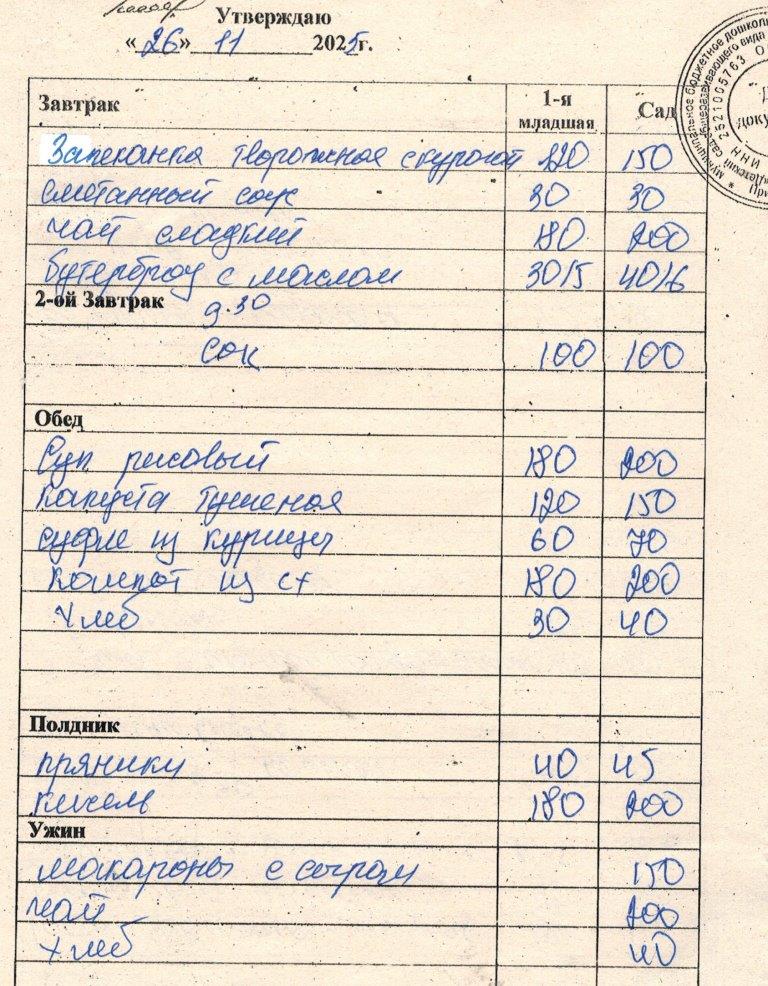 Утверждаю
«26» 11 2025г.
Завтрак 1-я младшая Сад
Запеканка творожная с курагой 120 150
сметанный соус 30 30
чай сладкий 180 200
бутерброд с маслом 30/5 40/6
2-ой Завтрак 9.30
сок 100 100
Обед
Суп рисовый 180 200
капуста тушеная 120 150
суфле из курицы 60 70
компот из сх 180 200
хлеб 30 40
Полдник
пряники 40 45
кисель 180 200
Ужин
макароны с сыром 150
чай 200
хлеб 40
муниципальное бюджетное дошколь
общеразвивающего вида
2521005763
ИНН